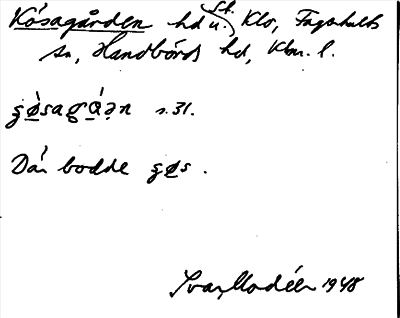 Kosagården hd u. St. Klo, Fagerhults
sn, Handbörds hd, Klm. l.
s. 31.
Där bodde
Ivar Modéer 1948